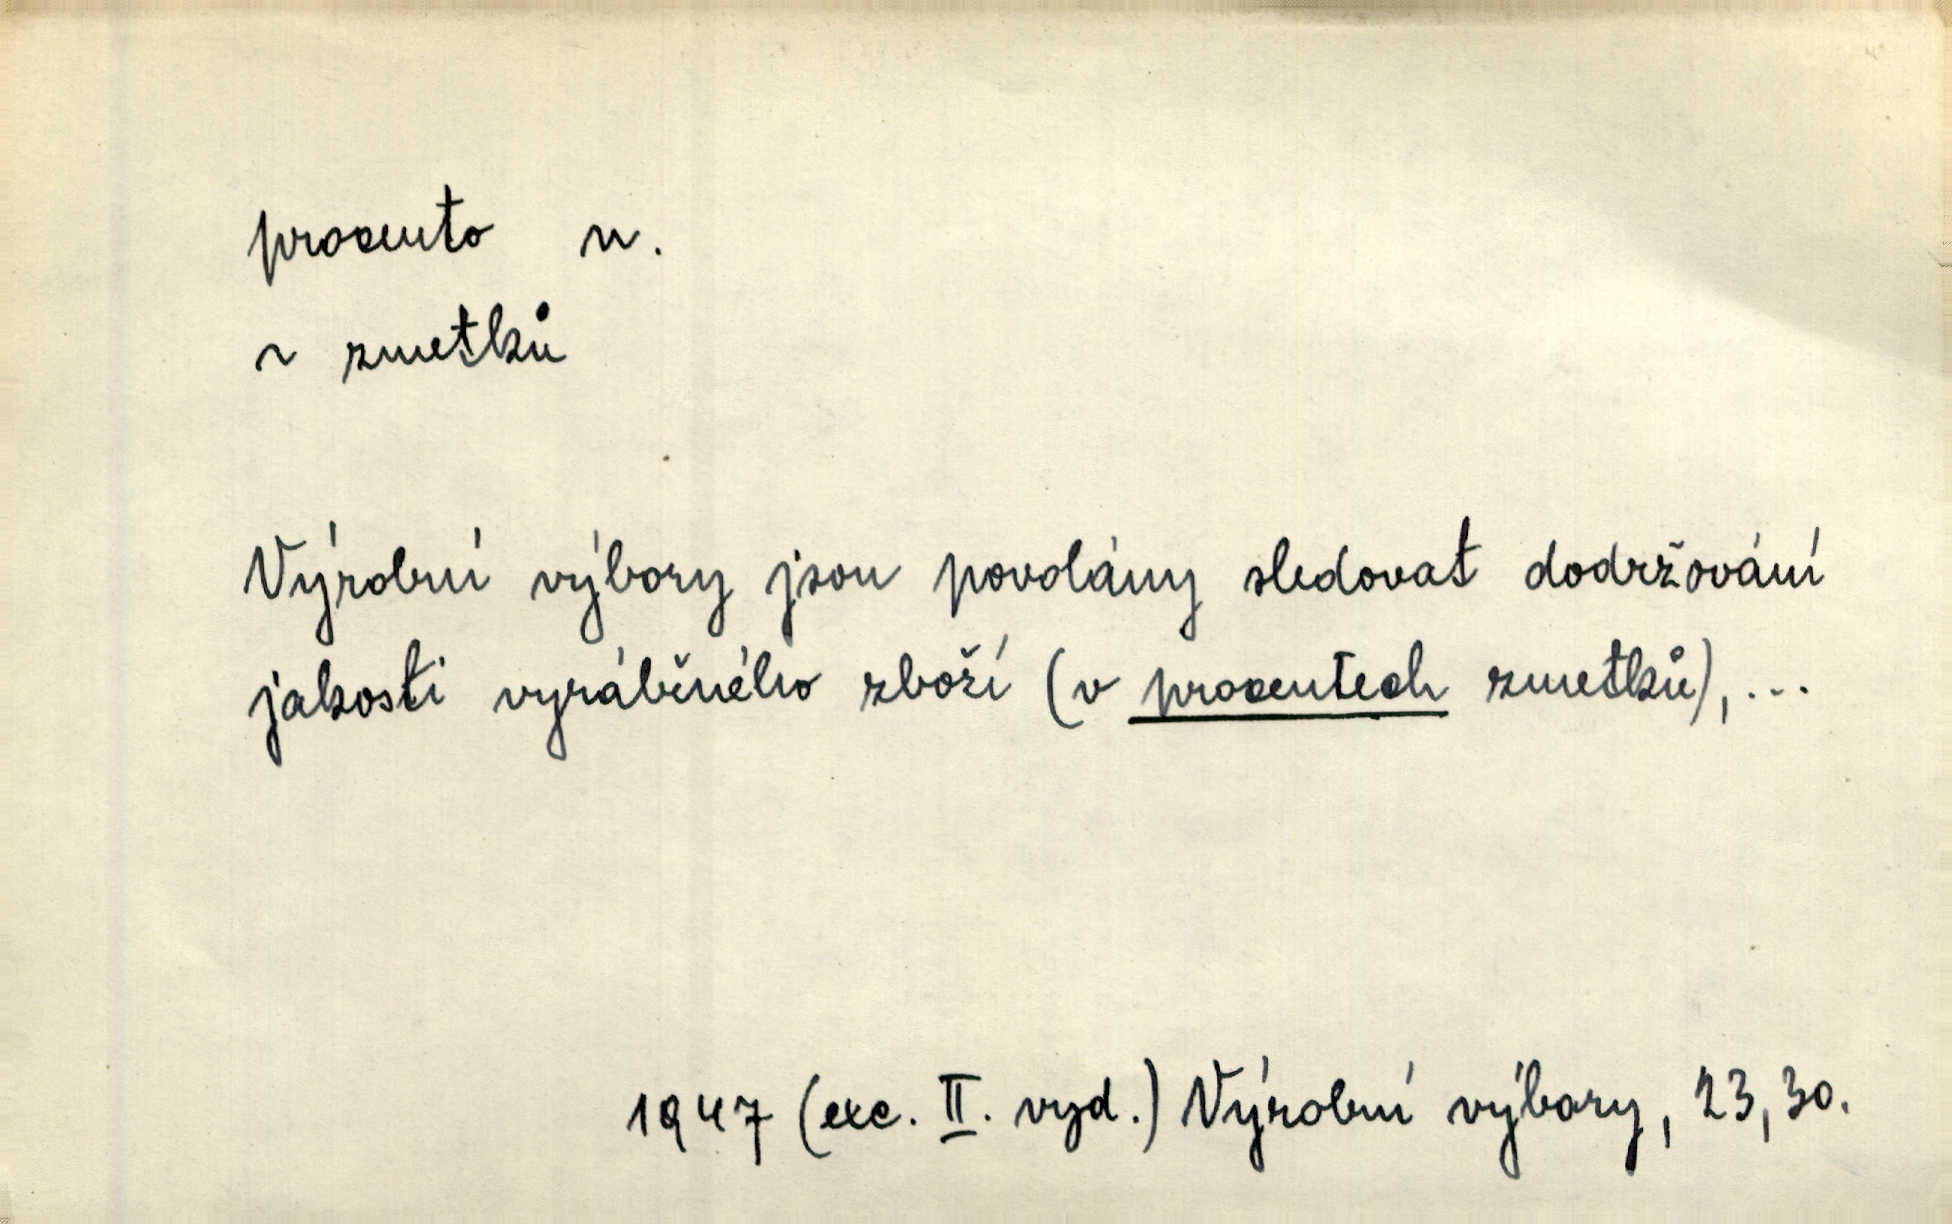 procento n.
~ zmetků
Výrobní výbory jsou povolány sledovat dodržování
jakosti vyráběného zboží (v procentech zmetků), ...
1947 (exc. II. vyd.) Výrobní výbory, 23, 30.